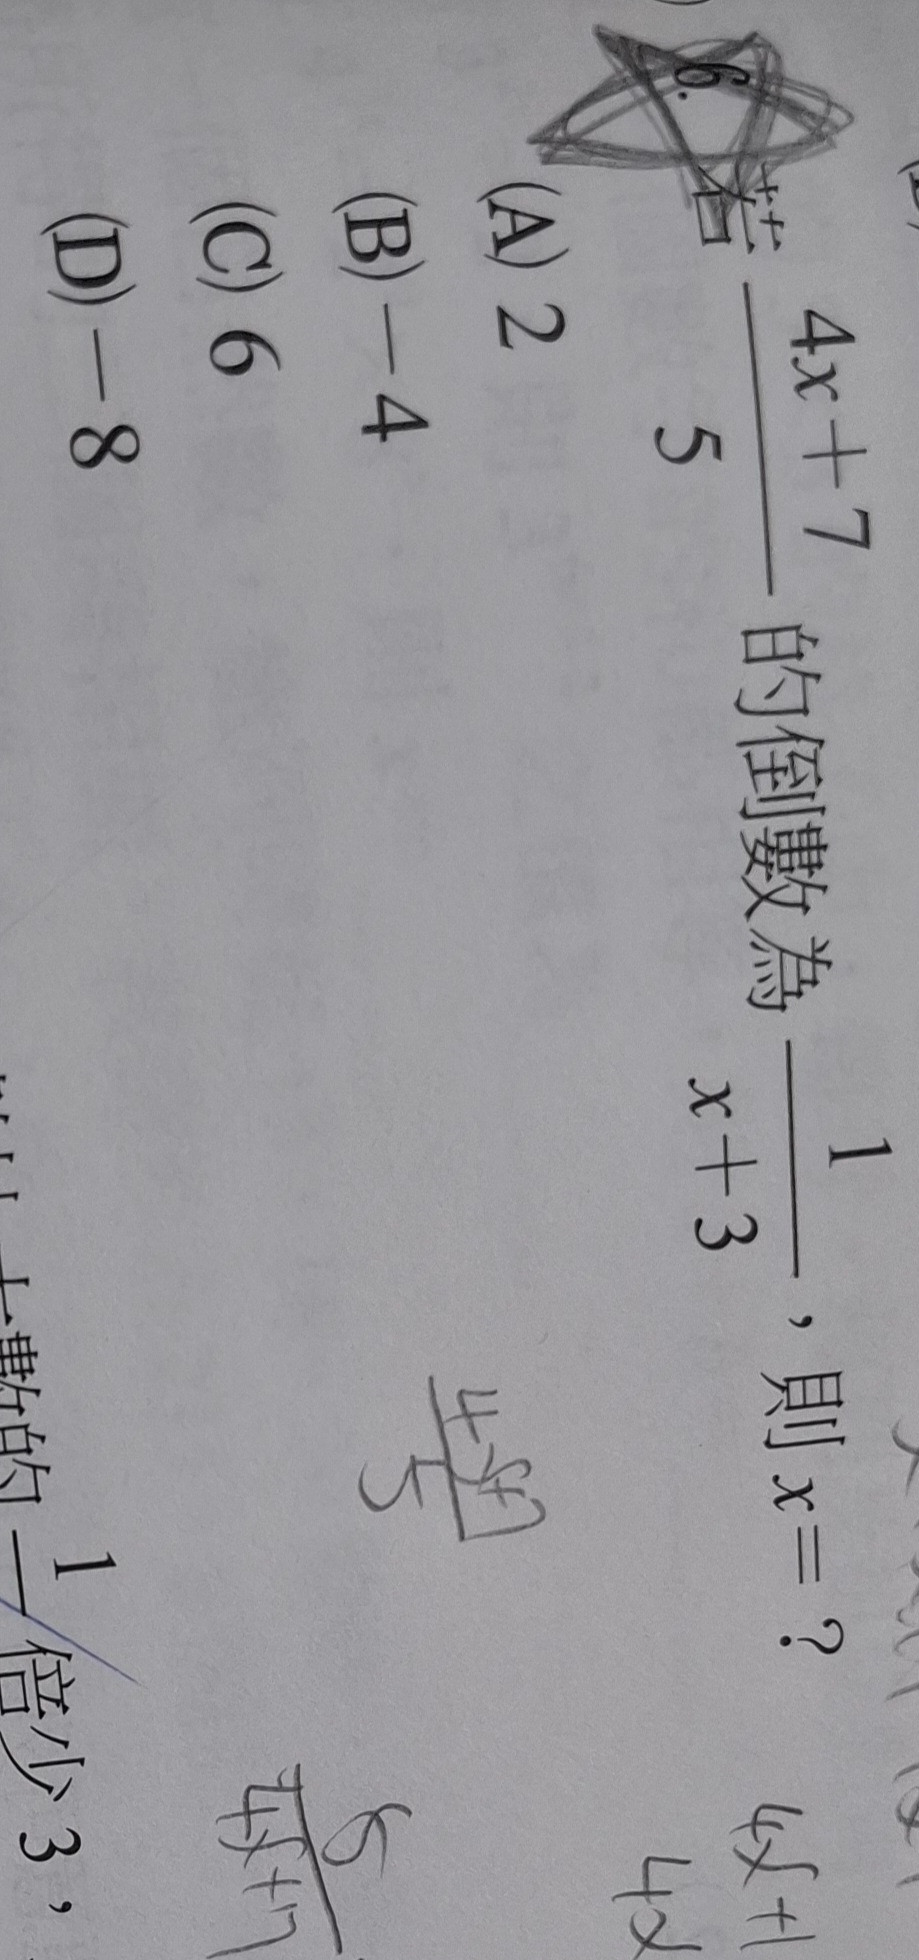 6. 若 (4x+7)/5 的倒數為 1/(x+3)，則 x=？
(A) 2
(B) －4
(C) 6
(D) －8
4x+7
5
4x
4x+7
數的 1 倍少 3，